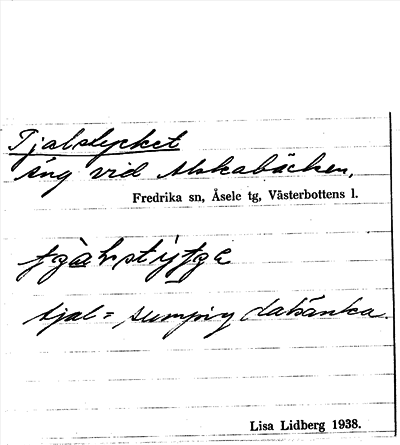 Tjalstycket
Äng vid Alskabäcken.
Fredrika sn, Åsele tg, Västerbottens l.
tjal = sumpig dalsänka.
Lisa Lidberg 1938.